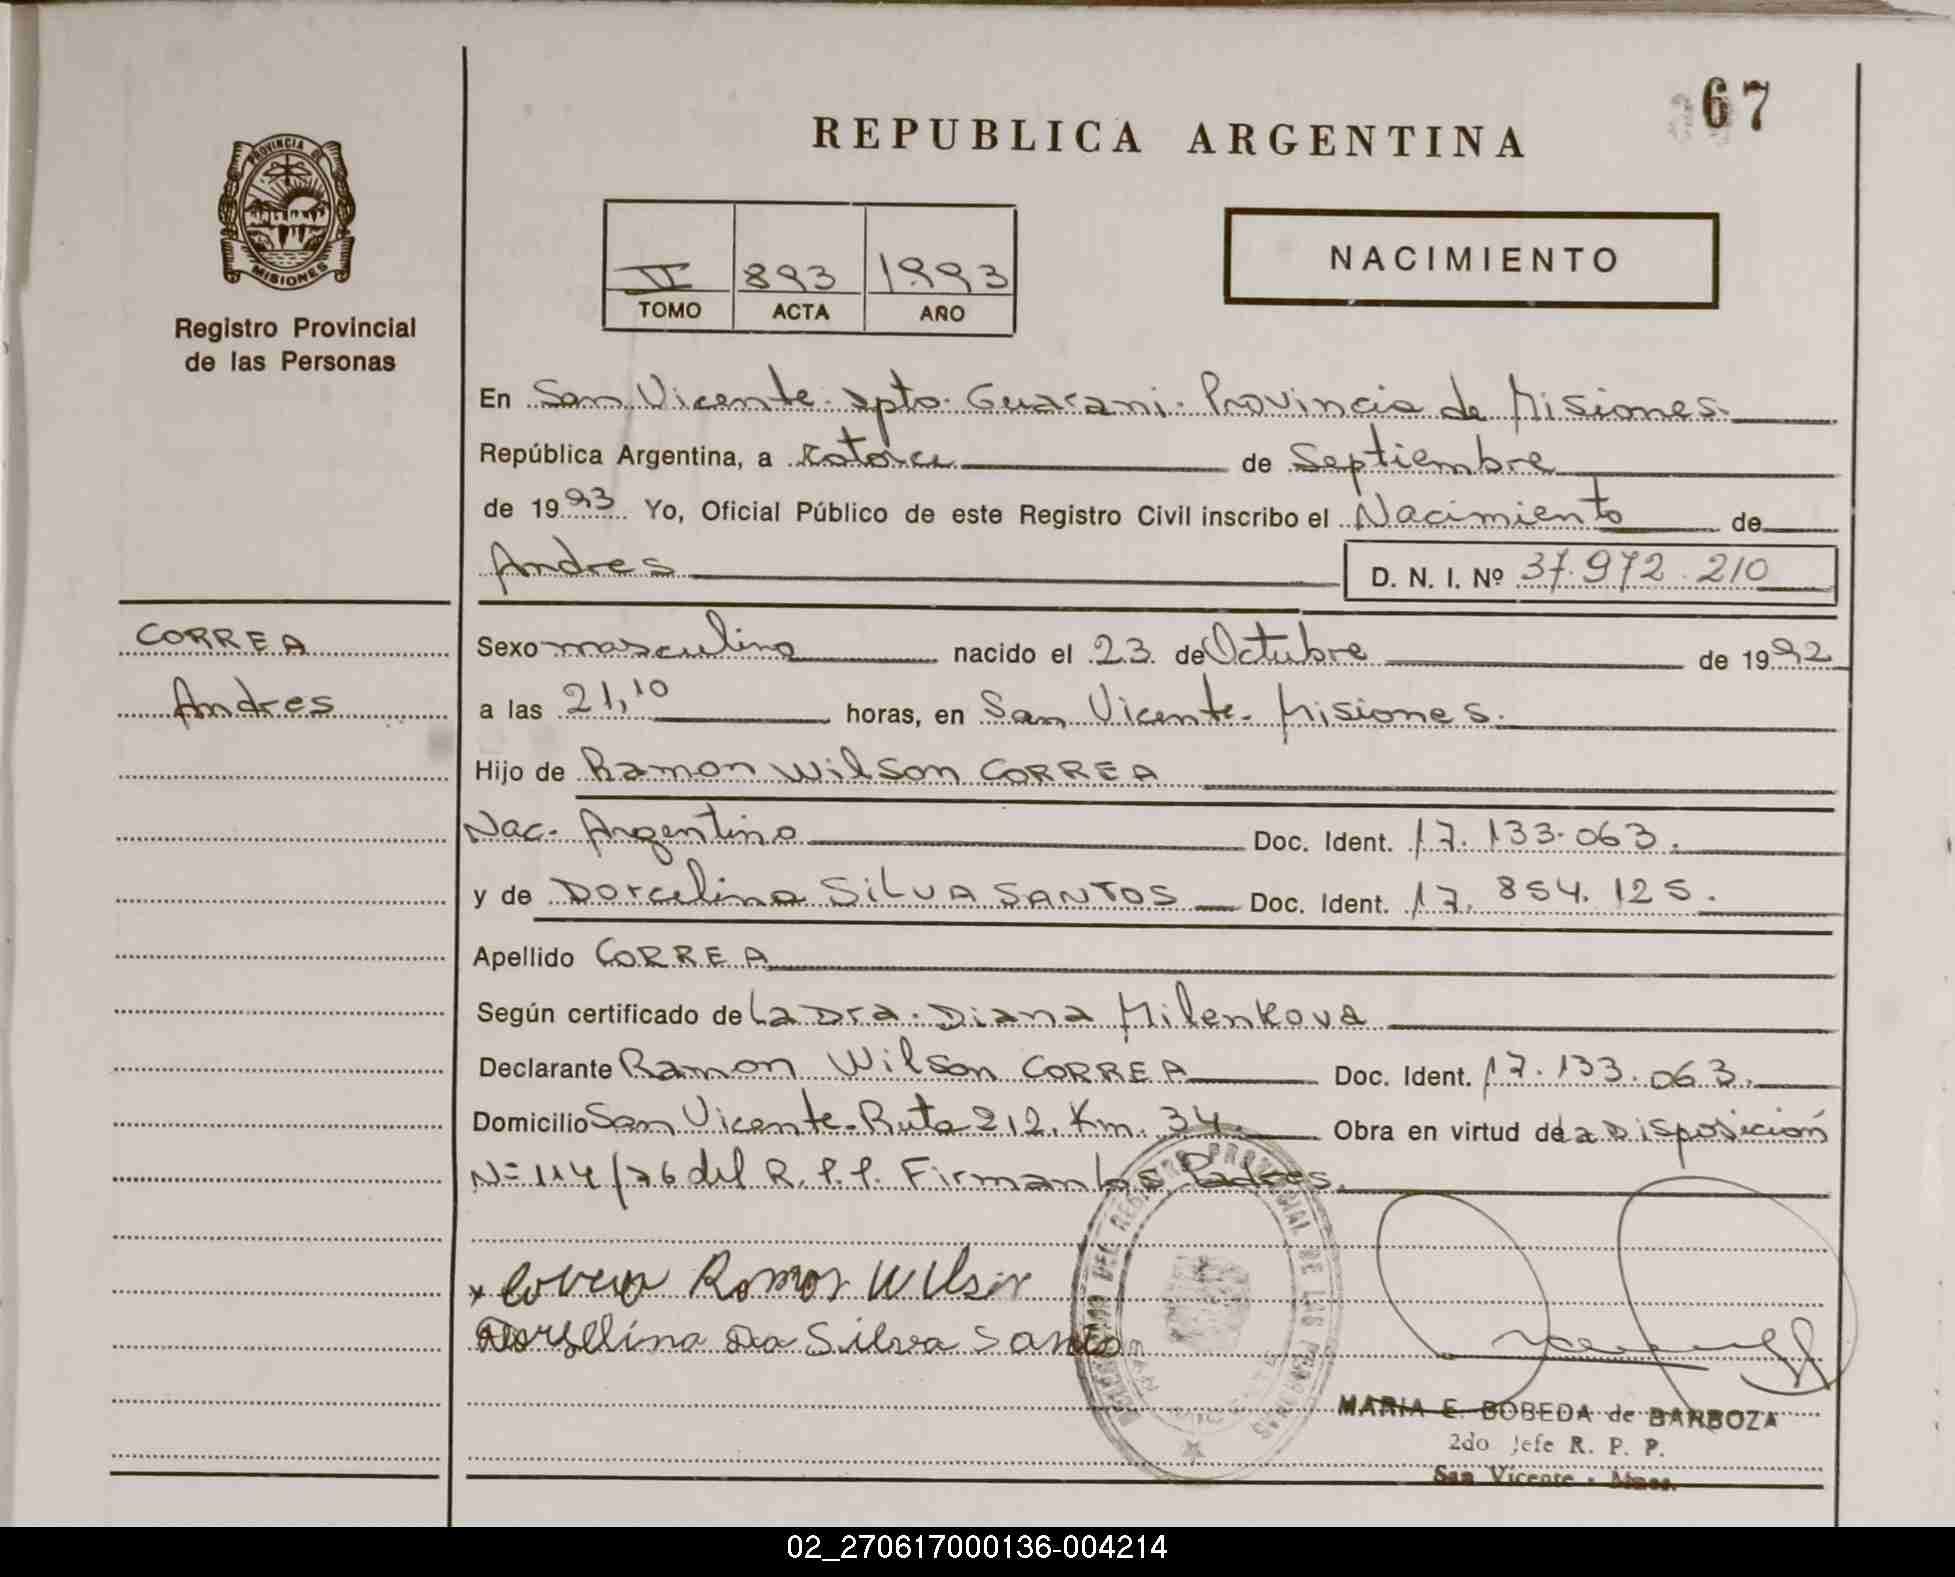 67
REPUBLICA ARGENTINA
PROVINCIA DE
MISIONES
Registro Provincial
de las Personas
II 893 1993
TOMO ACTA AÑO
NACIMIENTO
En San Vicente. Dpto. Guarani. Provincia de Misiones.
República Argentina, a catorce de Septiembre
de 1993 Yo, Oficial Público de este Registro Civil inscribo el Nacimiento de
Andres D. N. I. Nº 37.972.210
CORREA
Andres
Sexo masculino nacido el 23 de Octubre de 1992
a las 21,10 horas, en San Vicente. Misiones.
Hijo de Ramon Wilson CORREA
Nac. Argentino Doc. Ident. 17.133.063.
y de Dorcelina SILVA SANTOS Doc. Ident. 17.854.125.
Apellido CORREA
Según certificado de La Dra. Diana Milenkova
Declarante Ramon Wilson CORREA Doc. Ident. 17.133.063.
Domicilio San Vicente. Ruta 212. Km. 34. Obra en virtud de la Disposición
N= 114/76 del R.P.P. Firman los Padres.
x Correa Ramon Wilson
Dorselina Da Silva Santo
REGISTRO PROVINCIAL DE LAS PERSONAS
MARIA E. BOBEDA de BARBOZA
2do Jefe R. P. P.
San Vicente - Mnes.
02_270617000136-004214